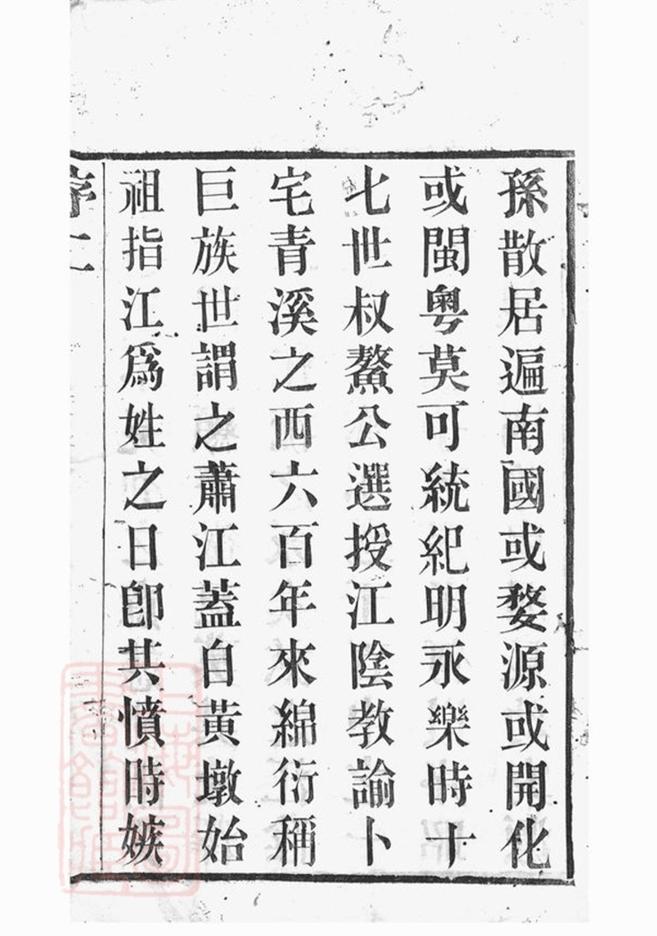 孫散居遍南國或婺源或開化
或閩粤莫可統紀明永樂時十
七世叔鰲公選授江陰教諭卜
宅青溪之西六百年來綿衍稱
巨族世謂之蕭江蓋自黃墩始
祖指江爲姓之日卽共憤時嫉
序二